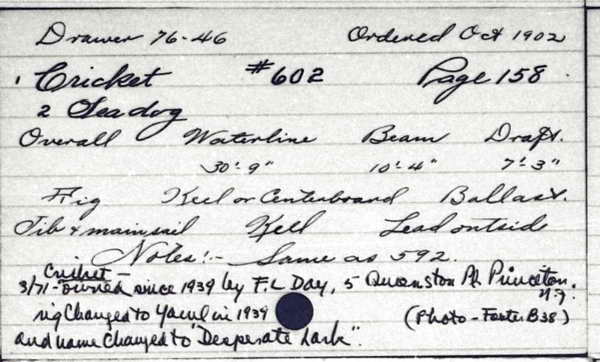 Drawer 76-46 Ordered Oct 1902
1 Cricket #602 Page 158
2 Sea dog
Overall Waterline Beam Draft.
30'-9" 10'-4" 7'-3"
Rig Keel or Centerboard Ballast.
Jib & mainsail Kell Lead outside
Notes:- Same as 592.
Cricket -
3/71 - owned since 1939 by F.L. Day, 5 Queenston Pl. Princeton.
N.J.
rig Changed to Yawl in 1939 (Photo - Foster B38)
and name Changed to "Desperate Lark".